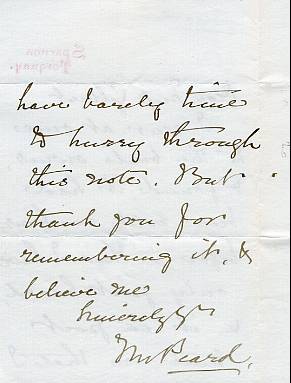 have barely time
to hurry through
this note. But
thank you for
remembering it, &
believe me
Sincerely Yrs
Peard.